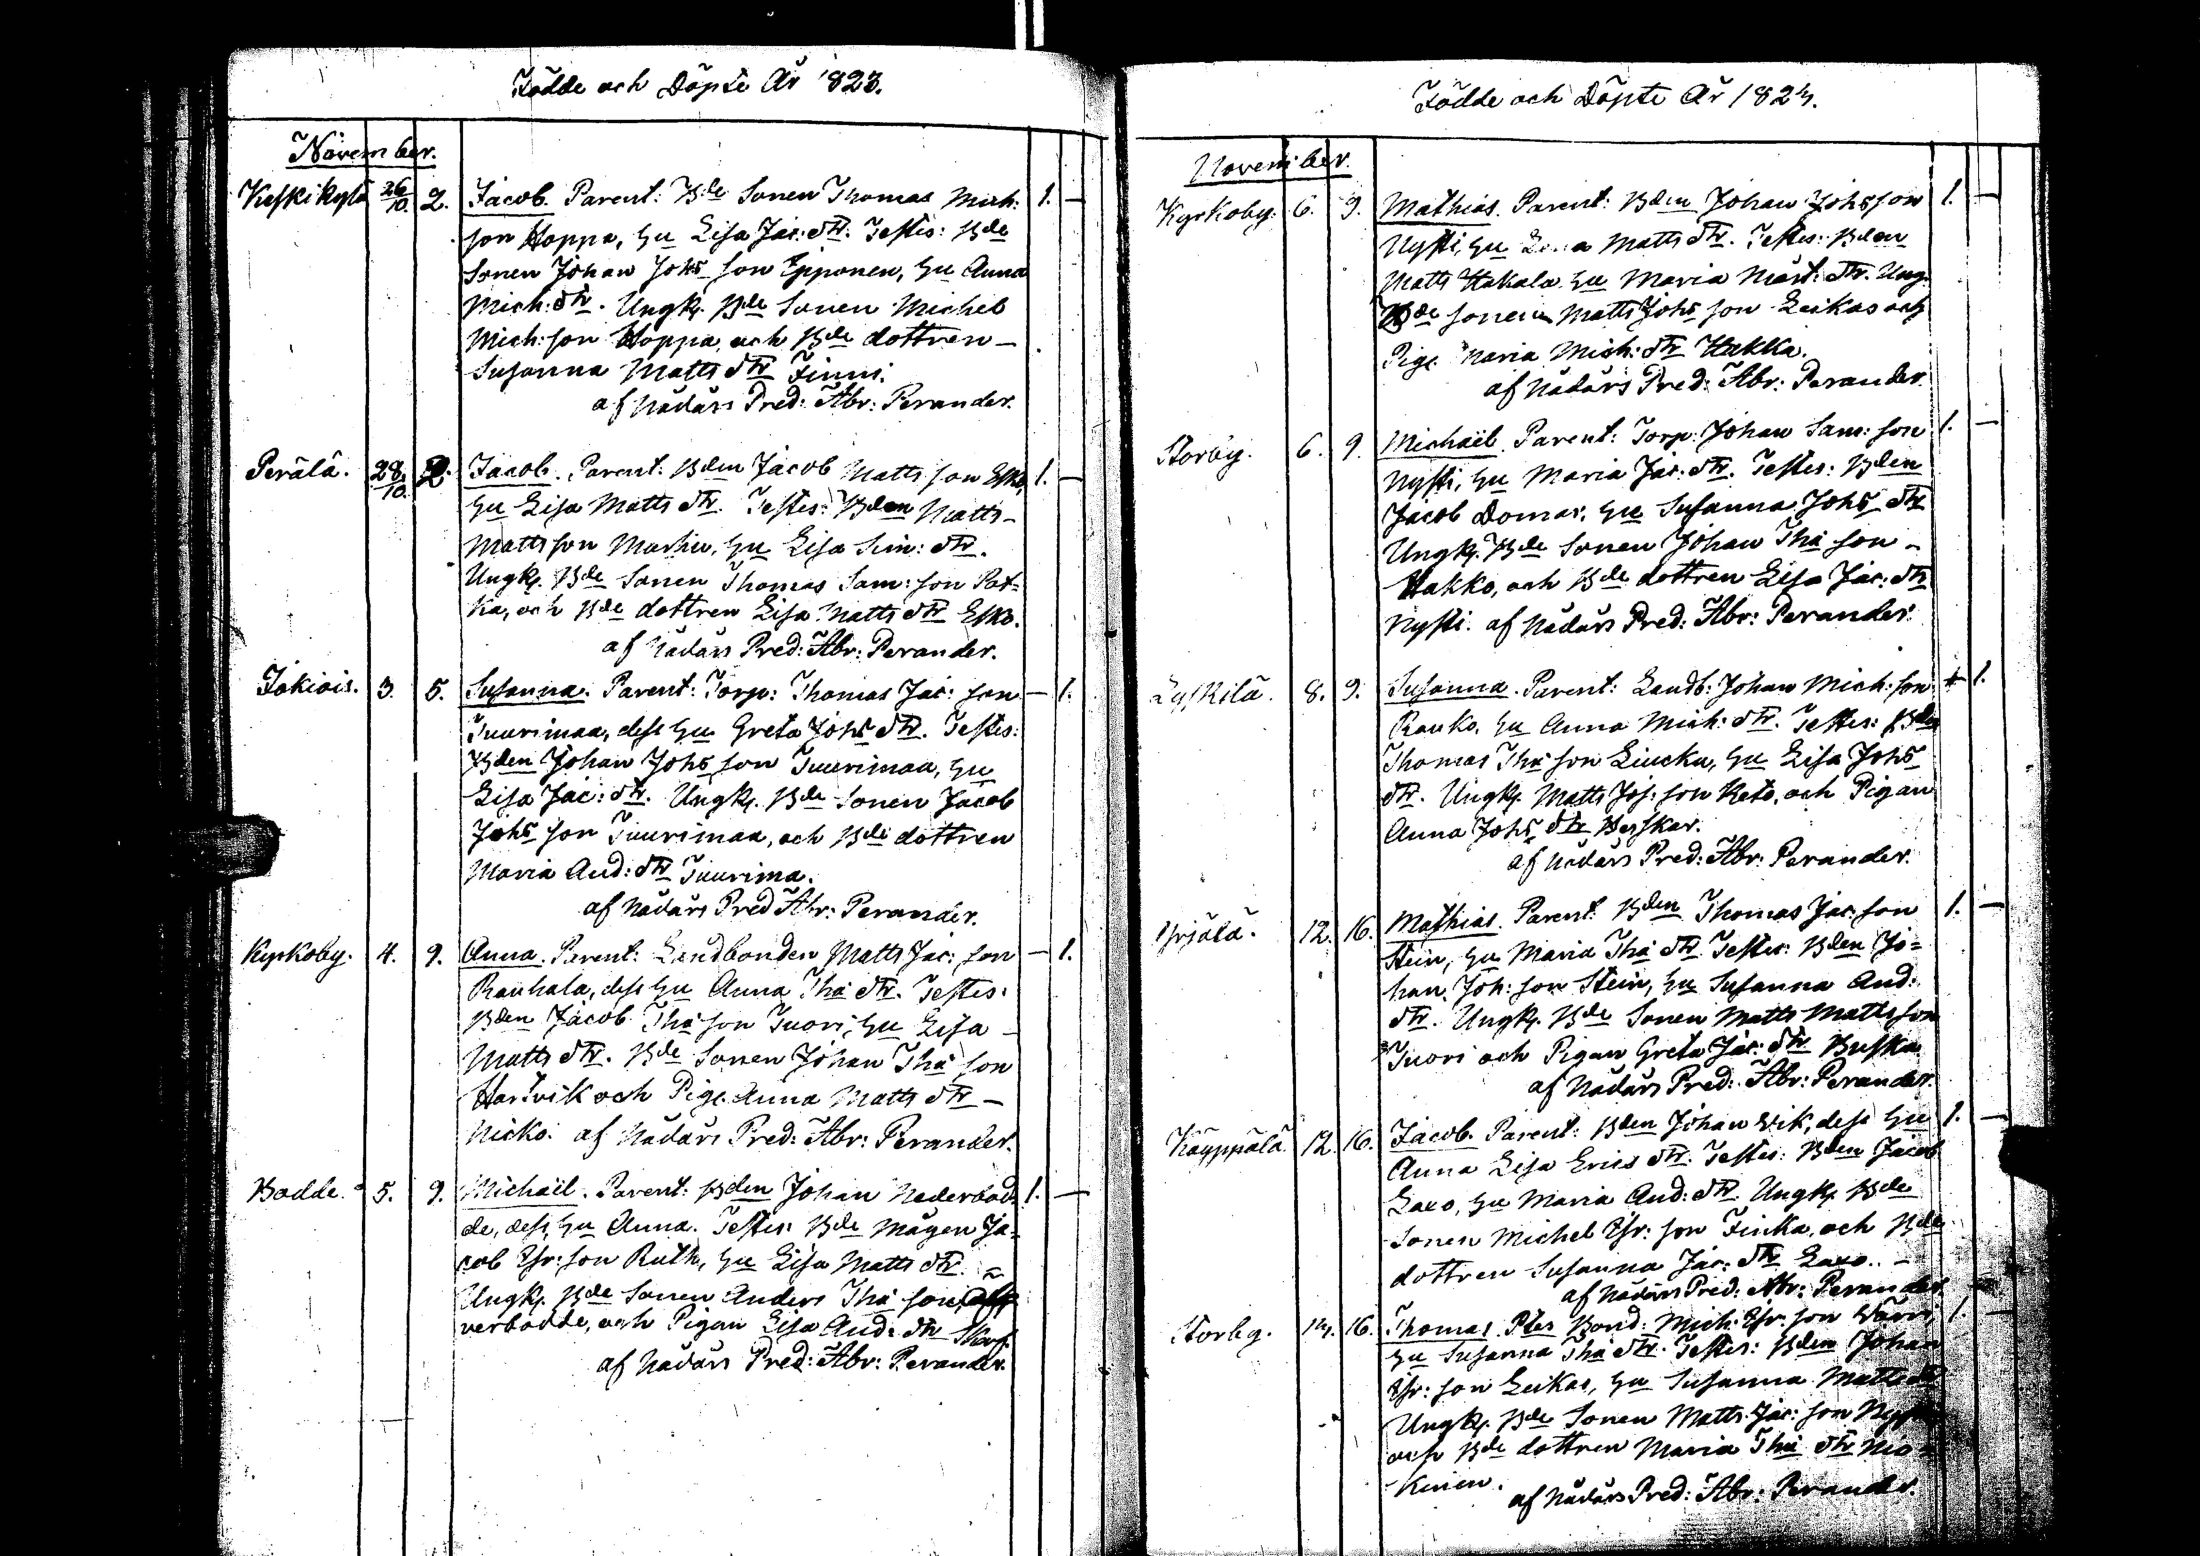 Födde och Döpte År 1823.
November.
Keskikylä 26/10. 2. Jacob. Parent: Bde Sonen Thomas Mich: 1. —
son Hoppa, hu Lisa Jac: dtr. Testes: Bde
Sonen Johan Johs son Ipponen, hu Anna
Mich: dtr. Ungk. Bde Sonen Michel
Mich: son Hoppa, och Bde dottren —
Susanna Matts dtr Finni.
af Nådårs Pred: Abr: Perander.
Perälä. 28/10. 2. Jacob. Parent: Bden Jacob Matts son Esko, 1. —
hu Lisa Matts dtr. Testes: Bden Matts —
Matts son Marhu, hu Lisa Sim: dtr.
Ungk. Bde Sonen Thomas Sam: son Pot-
ka, och Bde dottren Lisa Matts dtr Esko.
af Nådårs Pred: Abr: Perander.
Jokiois. 3. 5. Susanna. Parent: Torp: Thomas Jac: son — 1.
Tuurimaa, dess hu Greta Johs dtr. Testes:
Bden Johan Johs son Tuurimaa, hu
Lisa Jac: dtr. Ungk. Bde Sonen Jacob
Johs son Tuurimaa, och Bde dottren
Maria And: dtr Tuurima.
af Nådårs Pred Abr: Perander.
Kyrkoby. 4. 9. Anna. Parent: Landbonden Matts Jac: son — 1.
Rauhala, dess hu Anna Tha dtr. Testes:
Bden Jacob Tha son Tuori, hu Lisa —
Matts dtr. Bde Sonen Johan Tha son
Hartvik och Pig. Anna Matts dtr —
Nicko. af Nådårs Pred: Abr: Perander.
Bodde. 5. 9. Michaël. Parent: Bden Johan Nederbod- 1. —
de, dess hu Anna. Testes: Bde Mågen Ja-
cob Isr: son Ruth, hu Lisa Matts dtr.
Ungk. Bde Sonen Anders Tha son Öf-
verbodde, och Pigan Lisa And: dtr Skarf.
af Nådårs Pred: Abr: Perander.
Födde och Döpte År 1824.
November.
Kyrkoby. 6. 9. Mathias. Parent: Bden Johan Johs son 1. —
Nysti, hu Matts dtr. Testes: Bden
Matts Hakala hu Maria Mårt: dtr. Ung.
Bde sonen Matts Johs son Leikas och
Pig. Maria Mich: dtr Hakka.
af Nådårs Pred: Abr: Perander.
Storby. 6. 9. Michaël. Parent: Torp: Johan Sam: son 1. —
Nysti, hu Maria Jac: dtr. Testes: Bden
Jacob Domar, hu Susanna Johs dtr
Ungk. Bde Sonen Johan Tha son —
Hakko, och Bde dottren Lisa Jac: dtr
Nysti. af Nådårs Pred: Abr: Perander.
Lyskilä. 8. 9. Susanna. Parent: Landb: Johan Mich: son — 1.
Rauko, hu Anna Mich: dtr. Testes: Bden
Thomas Tha son Liucku, hu Lisa Johs
dtr. Ungk. Matts Jos: son Keto, och Pigan
Anna Johs dtr
af Nådårs Pred: Abr: Perander.
Yrjälä. 12. 16. Mathias. Parent: Bden Thomas Jac: son 1. —
Stein, hu Maria Tha dtr. Testes: Bden Jo-
han Joh: son Stein, hu Susanna And:
dtr. Ungk. Bde Sonen Matts Matts son
Tuori och Pigan Greta Jac: dtr Buska
af Nådårs Pred: Abr: Perander.
Käyppälä. 12. 16. Jacob. Parent: Bden Johan Wik, dess hu 1. —
Anna Lisa Erics dtr. Testes: Bden Jacob
Laxo, hu Maria And: dtr. Ungk. Bde
Sonen Michel Isr: son Finka, och Bde
dottren Susanna Jac: dtr Laxo. —
af Nådårs Pred: Abr: Perander.
Storby. 14. 16. Thomas. Ptes Bond: Mich: Isr: son Wärri, 1. —
hu Susanna Tha dtr. Testes: Bden Johan
Isr: son Leikas, hu Susanna Matts dtr
Ungk. Bde Sonen Matts Jac: son
och Bde dottren Maria Tha dtr
kinen.
af Nådårs Pred: Abr: Perander.